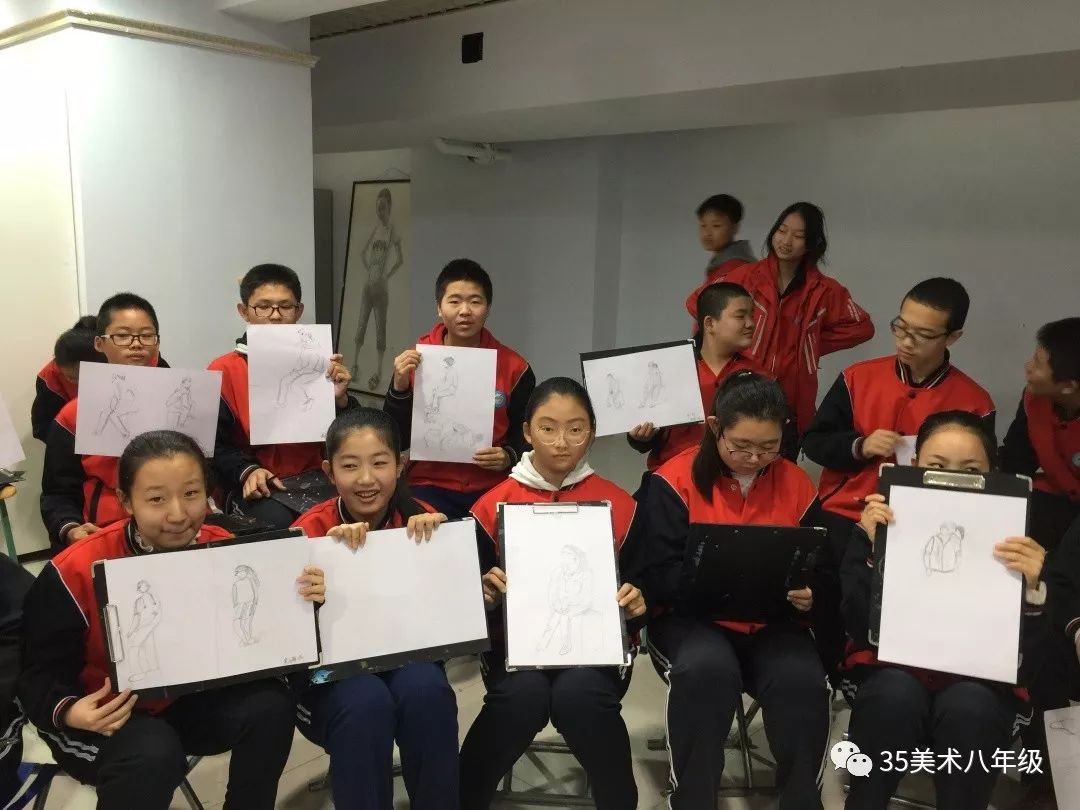 35美术八年级